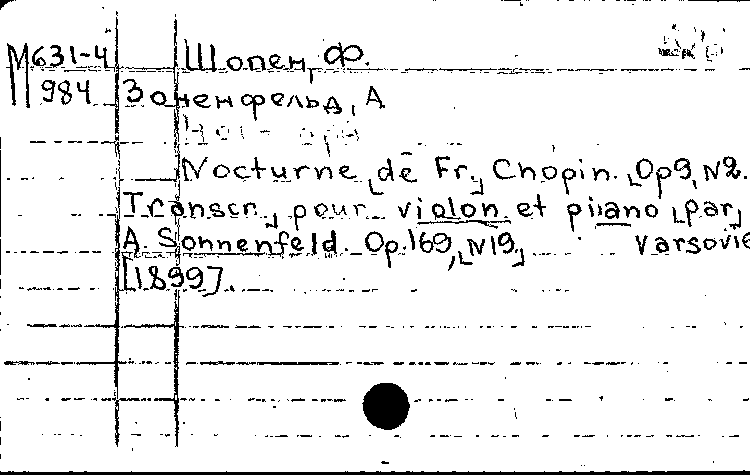 М631-4 Шопен, Ф.
984 Зоненфельд, А
Nocturne [de Fr.] Chopin. [Op9, N2.
Transcr.] pour violon et piano [par]
A. Sonnenfeld. Op.169, [N19.] Varsovie
[1899].